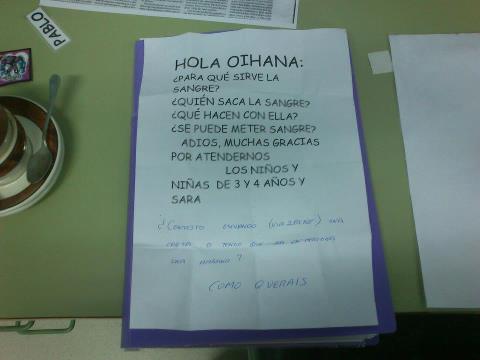 PABLO
HOLA OIHANA:
¿PARA QUÉ SIRVE LA
SANGRE?
¿QUIÉN SACA LA SANGRE?
¿QUÉ HACEN CON ELLA?
¿SE PUEDE METER SANGRE?
ADIOS, MUCHAS GRACIAS
POR ATENDERNOS
LOS NIÑOS Y
NIÑAS DE 3 Y 4 AÑOS Y
SARA
¿CONTESTO ENVIANDO UNA
CARTA O TENGO QUE
UNA MAÑANA?
COMO QUERAIS